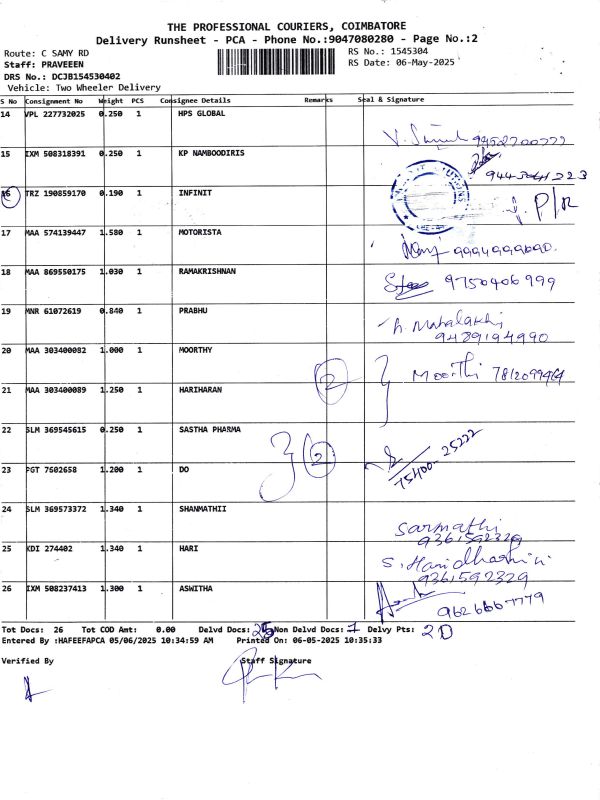 THE PROFESSIONAL COURIERS, COIMBATORE
Delivery Runsheet - PCA - Phone No.:9047080280 - Page No.:2
Route: C SAMY RD RS No.: 1545304
Staff: PRAVEEEN RS Date: 06-May-2025
DRS No.: DCJB154530402
Vehicle: Two Wheeler Delivery
S No Consignment No Weight PCS Consignee Details Remarks Seal & Signature
14 VPL 227732025 0.250 1 HPS GLOBAL
15 IXM 508318391 0.250 1 KP NAMBOODIRIS
16 TRZ 190859170 0.190 1 INFINIT
17 MAA 574139447 1.580 1 MOTORISTA
18 MAA 869550175 1.030 1 RAMAKRISHNAN 9750406999
19 MNR 61072619 0.840 1 PRABHU
9489194990
20 MAA 303400082 1.000 1 MOORTHY 2 Moorthi
21 MAA 303400089 1.250 1 HARIHARAN
22 SLM 369545615 0.250 1 SASTHA PHARMA 2
23 PGT 7502658 1.200 1 DO 75400-25222
24 SLM 369573372 1.340 1 SHANMATHII Sarmathi
9361592329
25 KDI 274402 1.340 1 HARI
9361592329
26 IXM 508237413 1.300 1 ASWITHA 9626667779
Tot Docs: 26 Tot COD Amt: 0.00 Delvd Docs: Non Delvd Docs: Delvy Pts: 20
Entered By :HAFEEFAPCA 05/06/2025 10:34:59 AM Printed On: 06-05-2025 10:35:33
Verified By Staff Signature